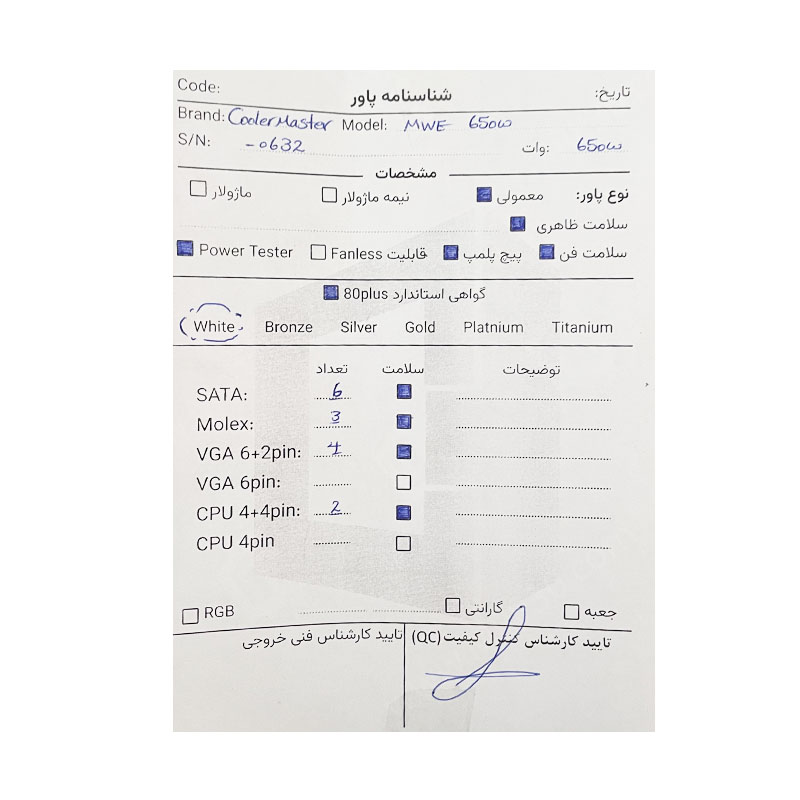 Code: شناسنامه پاور تاریخ:
Brand: CoolerMaster Model: MWE 650w
S/N: -0632 وات: 650w
مشخصات
نوع پاور: معمولی نیمه ماژولار ماژولار
سلامت ظاهری
سلامت فن پیچ پلمپ قابلیت Fanless Power Tester
گواهی استاندارد 80plus
White Bronze Silver Gold Platnium Titanium
تعداد سلامت توضیحات
SATA: 6
Molex: 3
VGA 6+2pin: 4
VGA 6pin:
CPU 4+4pin: 2
CPU 4pin
جعبه گارانتی RGB
تایید کارشناس کنترل کیفیت(QC) تایید کارشناس فنی خروجی